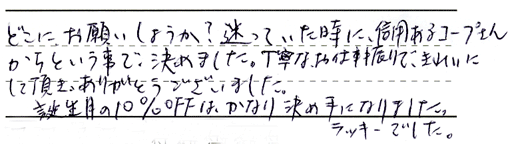 どこにお願いしようか?迷っていた時に、信用あるコープさん
からという事で、決めました。丁寧なお仕事振りで、きれいに
して頂き、ありがとうございました。
誕生月の10%OFFは、かなり決め手になりました。
ラッキーでした。